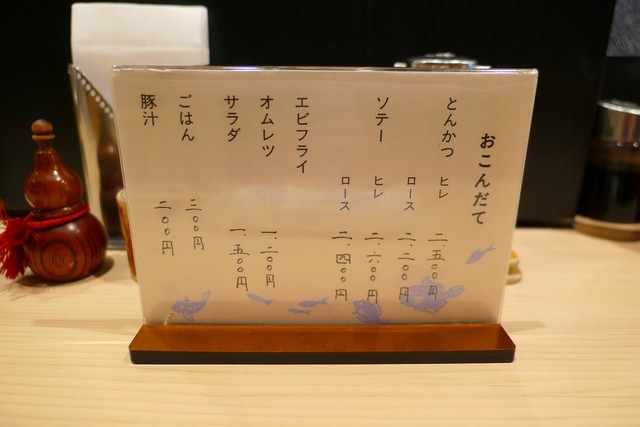 おこんだて
とんかつ ヒレ 二、五〇〇円
ロース 二、二〇〇円
ソテー ヒレ 二、六〇〇円
ロース 二、四〇〇円
エビフライ
オムレツ 一、二〇〇円
サラダ 一、五〇〇円
ごはん 三〇〇円
豚汁 二〇〇円